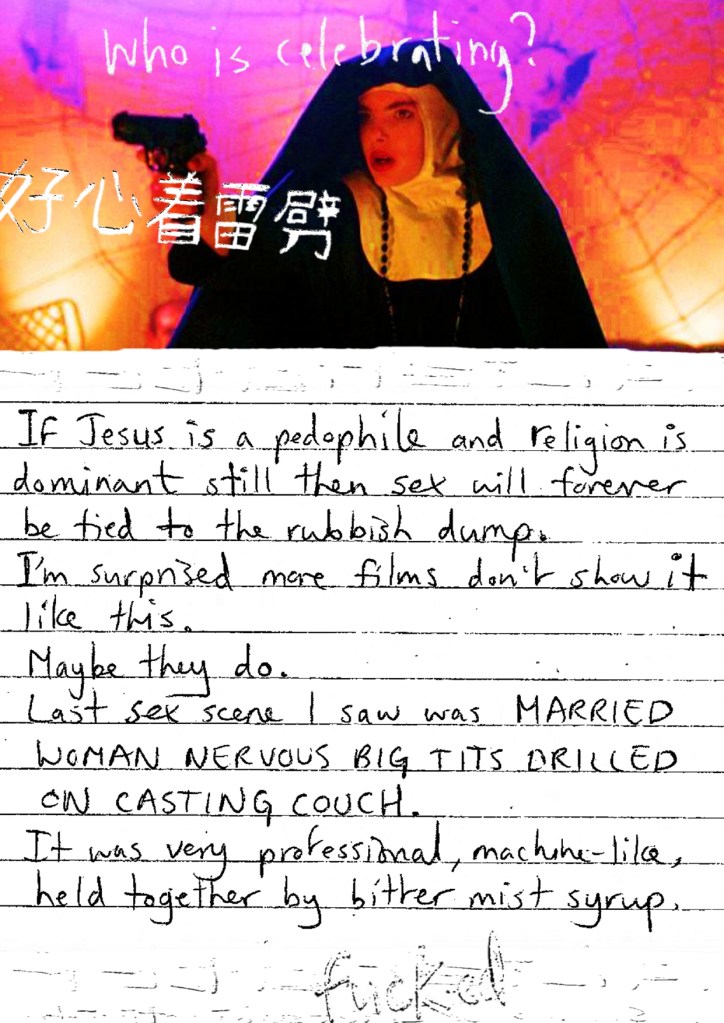 Who is celebrating?
好心着雷劈
If Jesus is a pedophile and religion is
dominant still then sex will forever
be tied to the rubbish dump.
I'm surprised more films don't show it
like this.
Maybe they do.
Last sex scene I saw was MARRIED
WOMAN NERVOUS BIG TITS DRILLED
ON CASTING COUCH.
It was very professional, machine-like,
held together by bitter mist syrup.
fucked